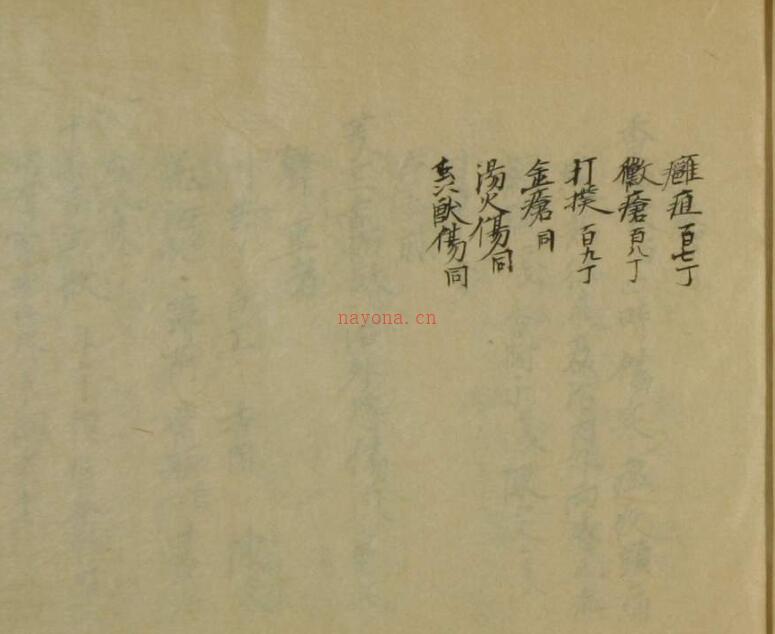 癰疽 百七丁
黴瘡 百八丁
打撲 百九丁
金瘡 同
湯火傷 同
獸傷 同
nayona.cn